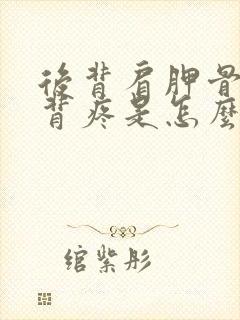 後背肩胛骨
背疼是怎麼
绾紫彤